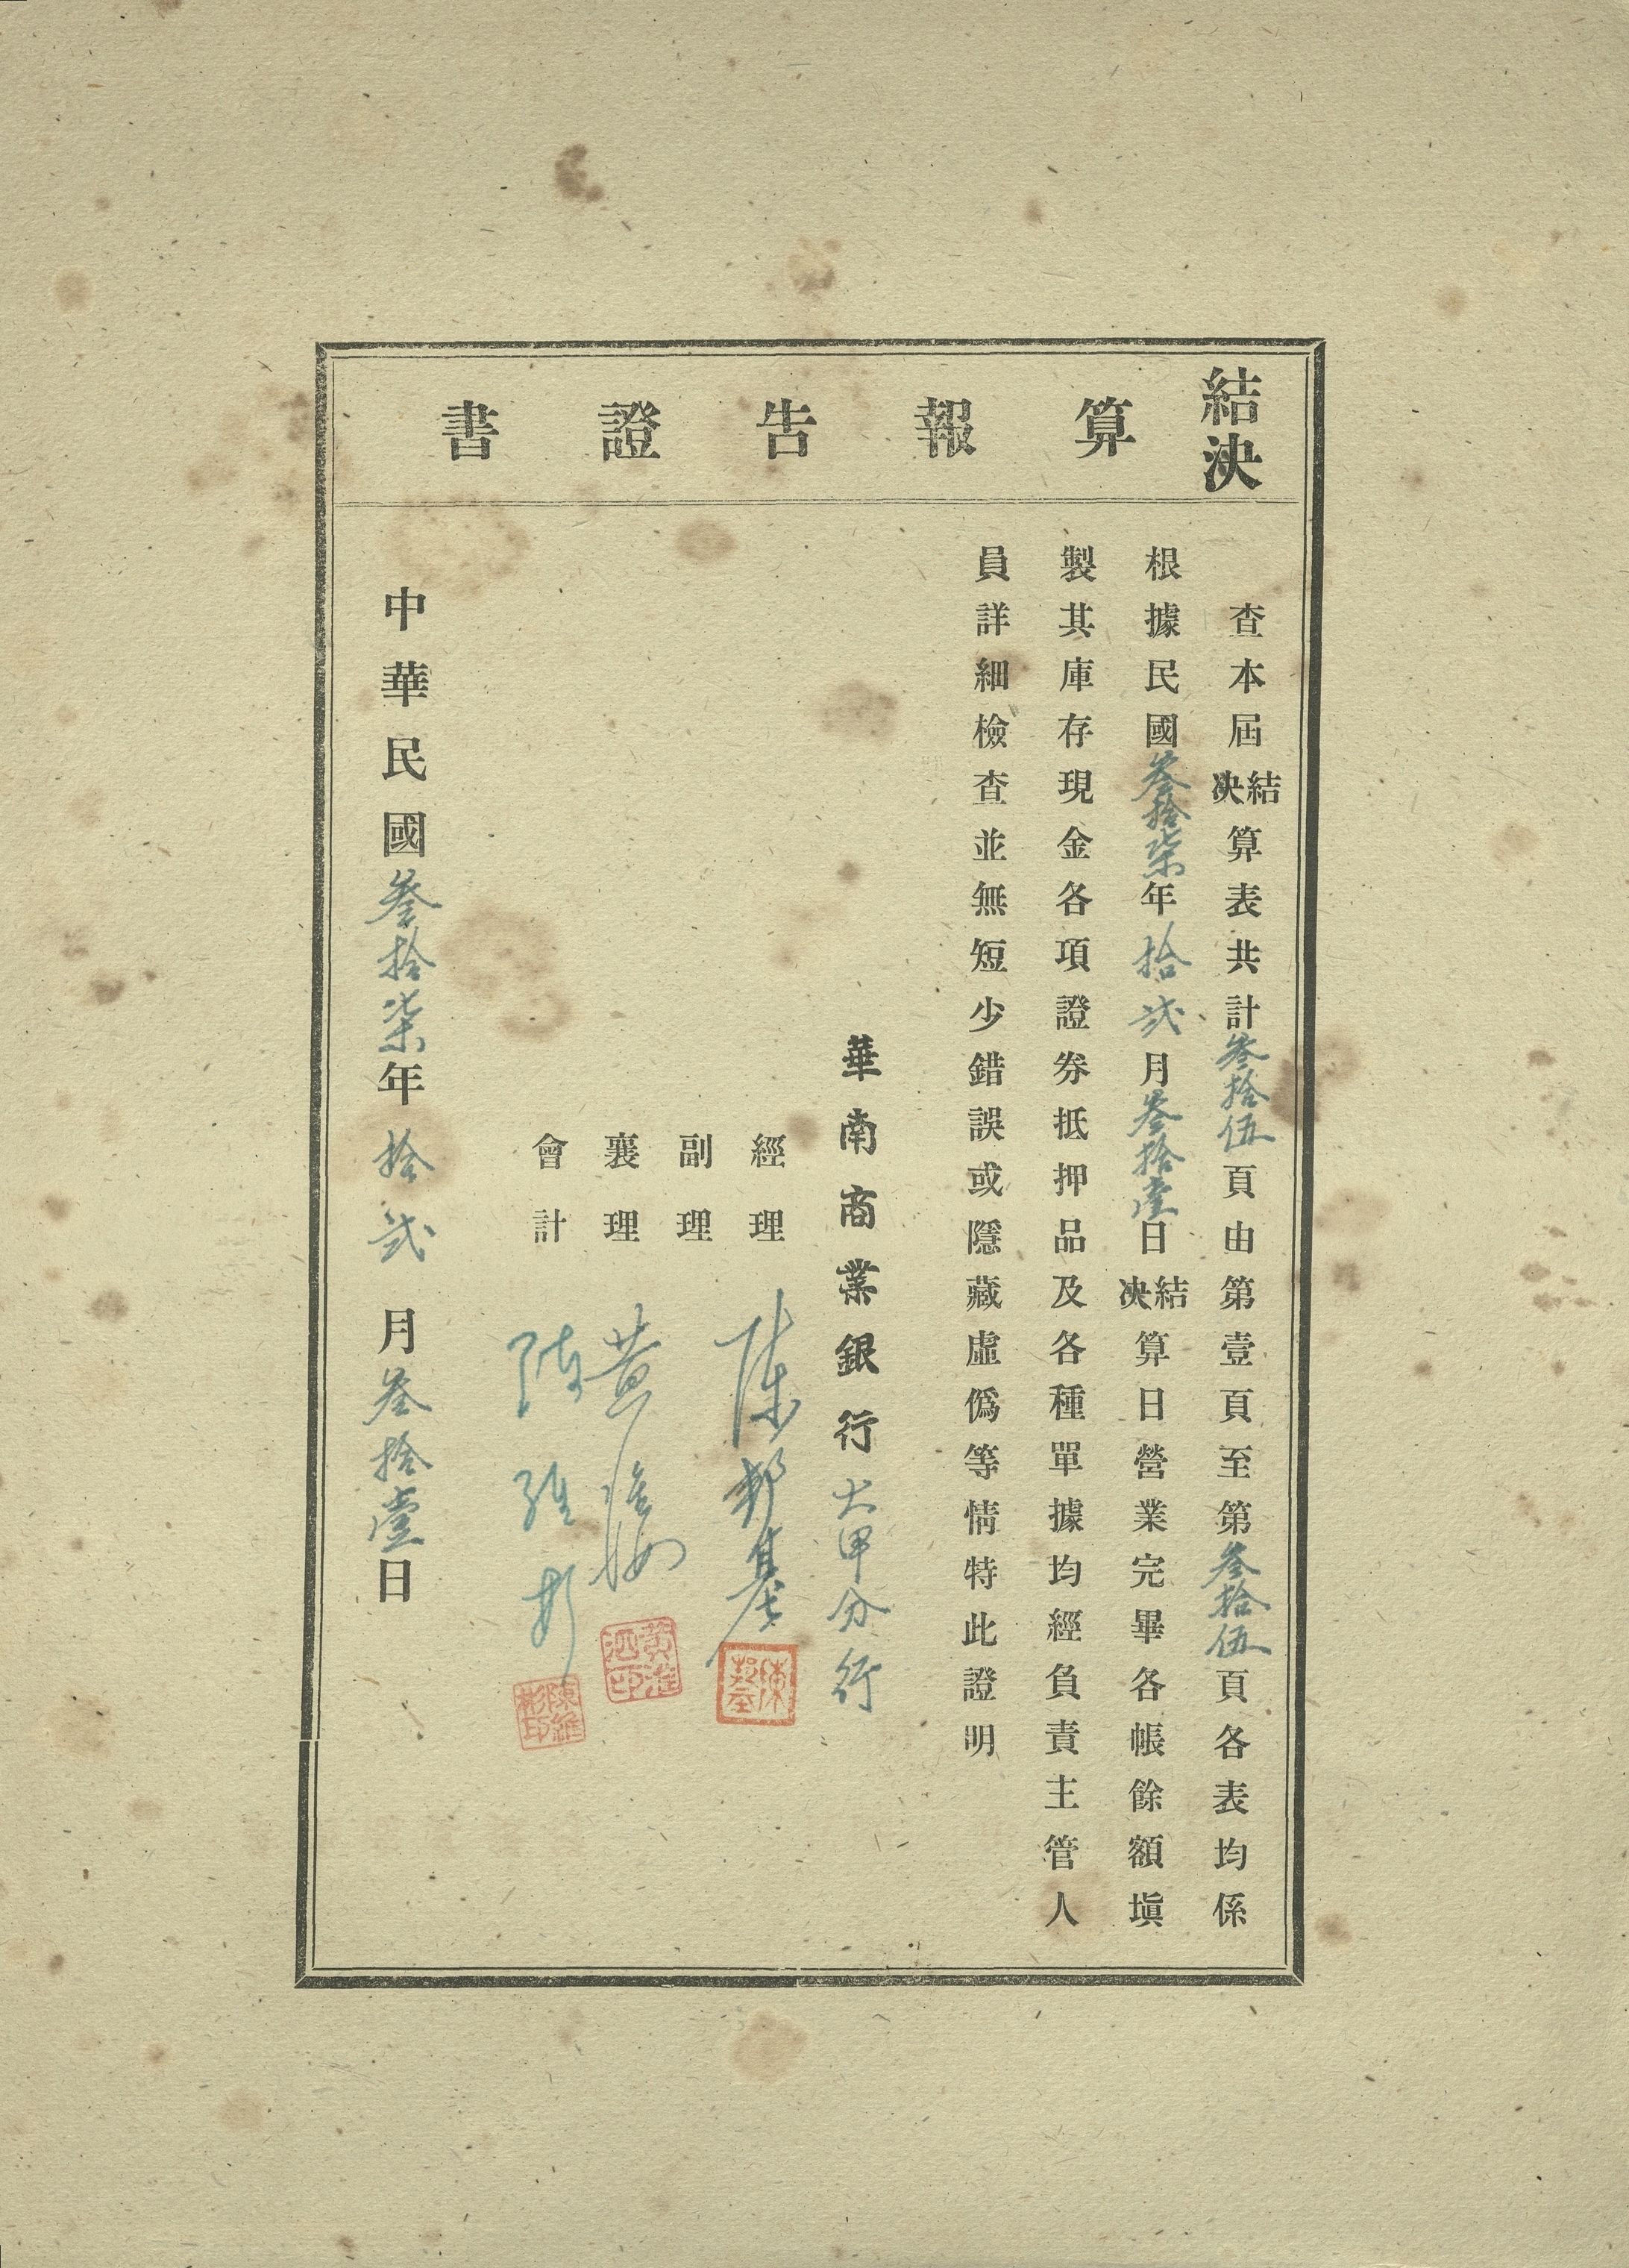 結決算報告證書
查本屆結決算表共計叁拾伍頁由第壹頁至第叁拾伍頁各表均係
根據民國叁拾柒年拾貳月叁拾壹日結決算日營業完畢各帳餘額塡
製其庫存現金各項證券抵押品及各種單據均經負責主管人
員詳細檢查並無短少錯誤或隱藏虛僞等情特此證明
華南商業銀行大甲分行
經理 陳邦基
陳邦基
副理
襄理 黃
黃淮泗印
會計 陳維彬
陳維彬印
中華民國叁拾柒年拾貳月叁拾壹日